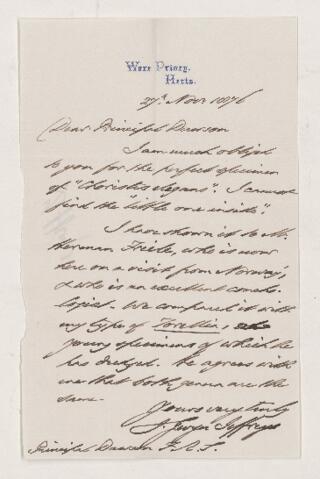 Ware Priory,
Herts.
27th Novr 1876
Dear Principal Dawson
I am much obliged
to you for the perfect specimen
of "Choristes elegans". I cannot
find the "little one inside".
I have shown it to Mr.
Herman Friele, who is now
here on a visit from Norway,
& who is an excellent concho-
logist. We compared it with
my type of Torellia, &
young specimens of which he
has dredged. He agrees with
me that both genera are the
same.
Yours very truly
J. Gwyn Jeffreys
Principal Dawson F.R.S.